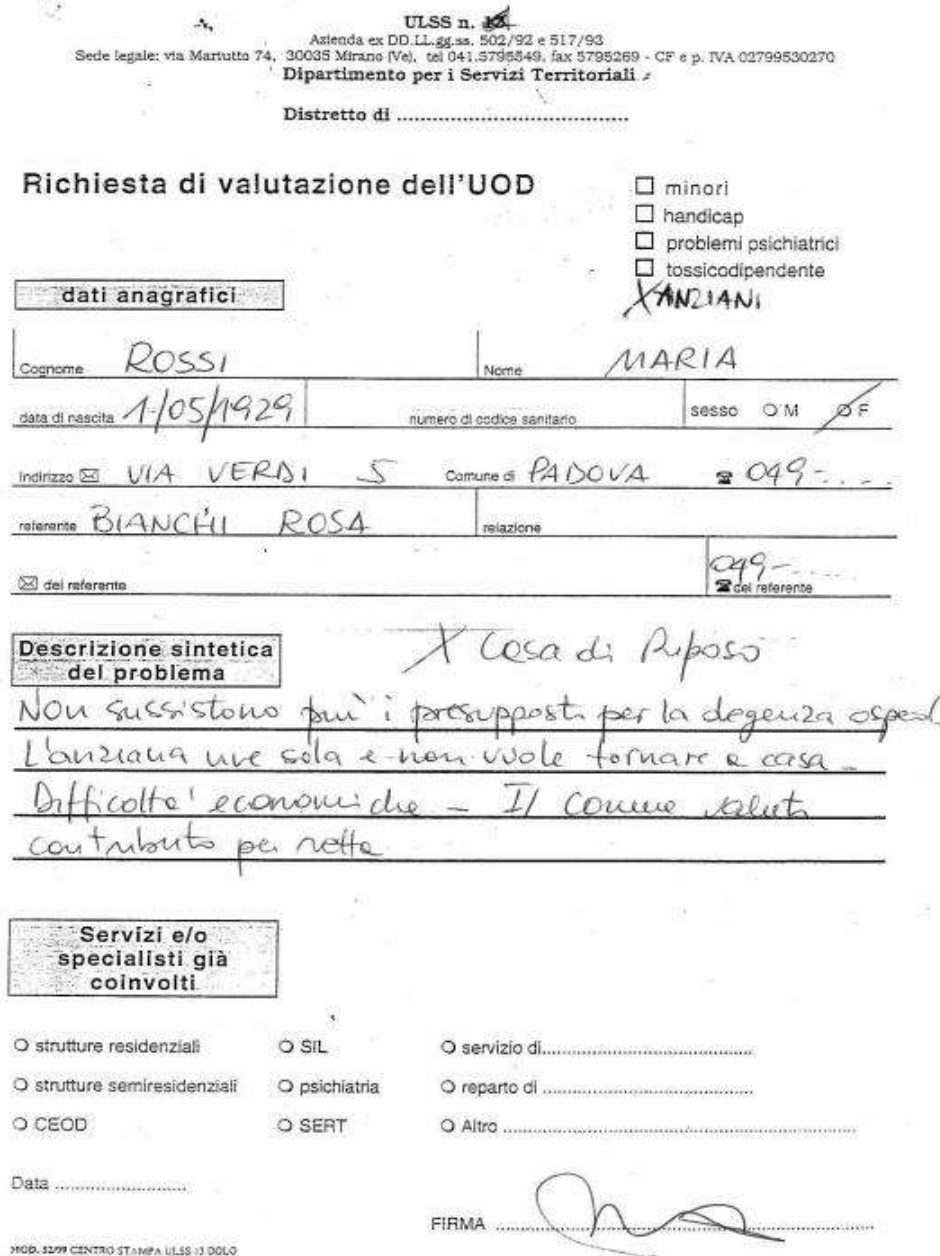 ULSS n.
Azienda ex DD.LL.gg.ss. 502/92 e 517/93
Sede legale: via Mariutto 74, 30035 Mirano (Ve), tel 041.5795549, fax 5795269 - CF e p. IVA 02799530270
Dipartimento per i Servizi Territoriali
Distretto di ........................................
Richiesta di valutazione dell'UOD
☐ minori
☐ handicap
☐ problemi psichiatrici
☐ tossicodipendente
X ANZIANI
dati anagrafici
Cognome ROSSI Nome MARIA
data di nascita 1/05/1929 numero di codice sanitario sesso O M O F
Indirizzo VIA VERDI 5 Comune di PADOVA 049-....
referente BIANCHI ROSA relazione
del referente 049-..... del referente
Descrizione sintetica
del problema
X Casa di Riposo
Non sussistono più i presupposti per la degenza osped.
L'anziana vive sola e non vuole tornare a casa -
Difficolta' economiche - Il Comune valuta
contributo per retta
Servizi e/o
specialisti già
coinvolti
O strutture residenziali O SIL O servizio di........................................
O strutture semiresidenziali O psichiatria O reparto di ........................................
O CEOD O SERT O Altro ........................................
Data ........................
FIRMA ........................................
MOD. 52/99 CENTRO STAMPA ULSS 13 DOLO